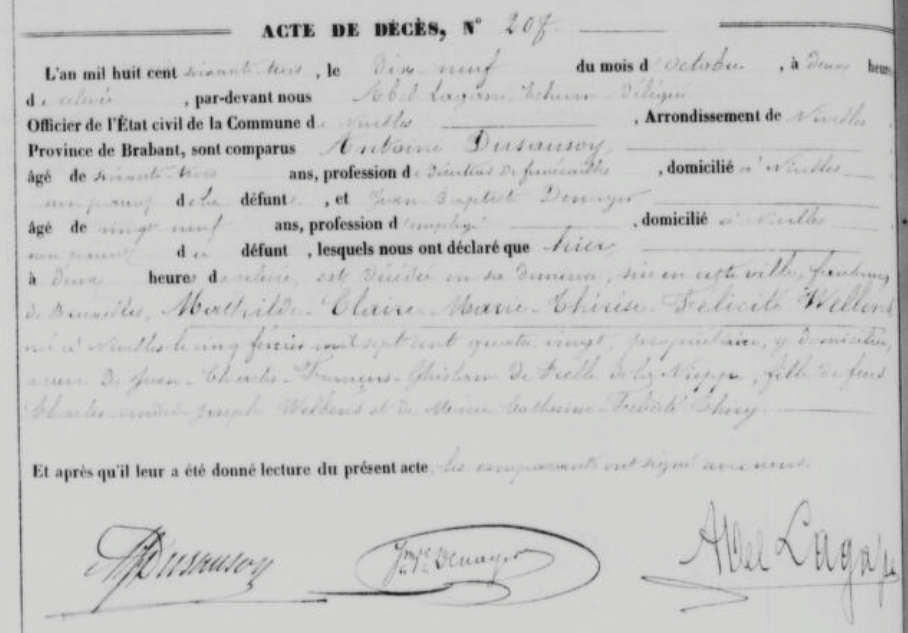 ACTE DE DÉCÈS, N° 207
L'an mil huit cent soixante trois, le Dix-neuf du mois d'octobre, à deux heures
de relevée, par-devant nous Abel Lagasse, Echevin-Délégué
Officier de l'État civil de la Commune de Nivelles, Arrondissement de Nivelles
Province de Brabant, sont comparus Antoine Dusausoy,
âgé de soixante trois ans, profession de Directeur de funérailles, domicilié à Nivelles
non parent de la défunte, et Jean Baptiste Demayer
âgé de vingt neuf ans, profession d'employé, domicilié à Nivelles
non parent de défunt, lesquels nous ont déclaré que hier,
à deux heures de relevée, est décédée en sa demeure, sise en cette ville, faubourg
de Bruxelles, Mathilde-Claire-Marie-Thérèse-Felicité Wellens
née à Nivelles le cinq février mil sept cent quatre vingt, propriétaire, y domiciliée,
veuve de Jean-Charles-François-Ghislain de Nieppe, fille de feus
Charles-André-Joseph Wellens et de Marie Catherine-Felicité Thiry
Et après qu'il leur a été donné lecture du présent acte, les comparants ont signé avec nous.
Dusausoy Demayer Abel Lagasse